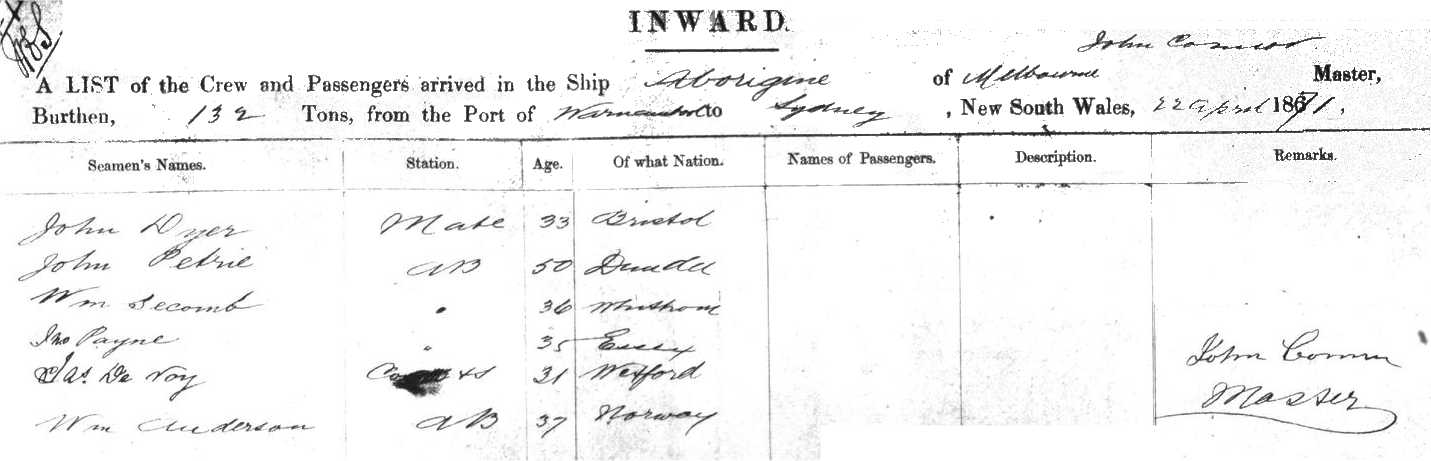 INWARD.
John
A LIST of the Crew and Passengers arrived in the Ship Aborigine of Melbourne Master,
Burthen, 132 Tons, from the Port of to Sydney, New South Wales, 22 April 1871.
Seamen's Names. Station. Age. Of what Nation. Names of Passengers. Description. Remarks.
John Dyer Mate 33 Bristol
John Petrie AB 50 Dundee
Wm Secomb " 36
Jno Payne " 35 Essex
Jas. De Voy 31 Wexford
Wm Anderson AB 37 Norway
John
Master